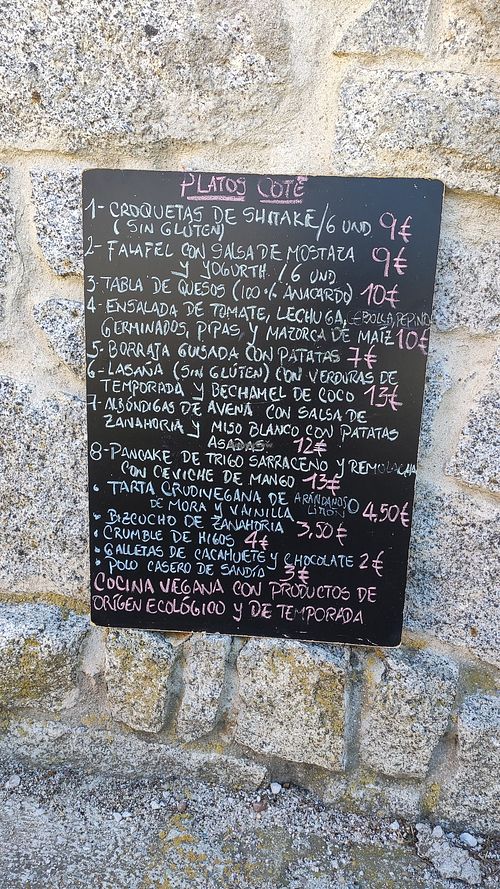 PLATOS COTÉ
1- CROQUETAS DE SHITAKE/6 UND 9€
(SIN GLUTEN)
2- FALAFEL CON SALSA DE MOSTAZA
Y YOGURTH. /6 UND 9€
3- TABLA DE QUESOS (100% ANACARDO) 10€
4- ENSALADA DE TOMATE, LECHUGA, CEBOLLA, PEPINO
GERMINADOS, PIPAS, Y MAZORCA DE MAÍZ 10€
5- BORRAJA GUISADA CON PATATAS 7€
6- LASAÑA (SIN GLÚTEN) CON VERDURAS DE
TEMPORADA Y BECHAMEL DE COCO 13€
7- ALBÓNDIGAS DE AVENA CON SALSA DE
ZANAHORIA Y MISO BLANCO CON PATATAS
ASADAS 12€
8- PANCAKE DE TRIGO SARRACENO Y REMOLACHA
CON CEVICHE DE MANGO 13€
• TARTA CRUDIVEGANA DE ARÁNDANOS O
DE MORA Y VAINILLA LIMÓN 4,50€
• BIZCOCHO DE ZANAHORIA 3,50€
• CRUMBLE DE HIGOS 4€
• GALLETAS DE CACAHUETE Y CHOCOLATE 2€
• POLO CASERO DE SANDÍA 3€
COCINA VEGANA CON PRODUCTOS DE
ORIGEN ECOLÓGICO Y DE TEMPORADA